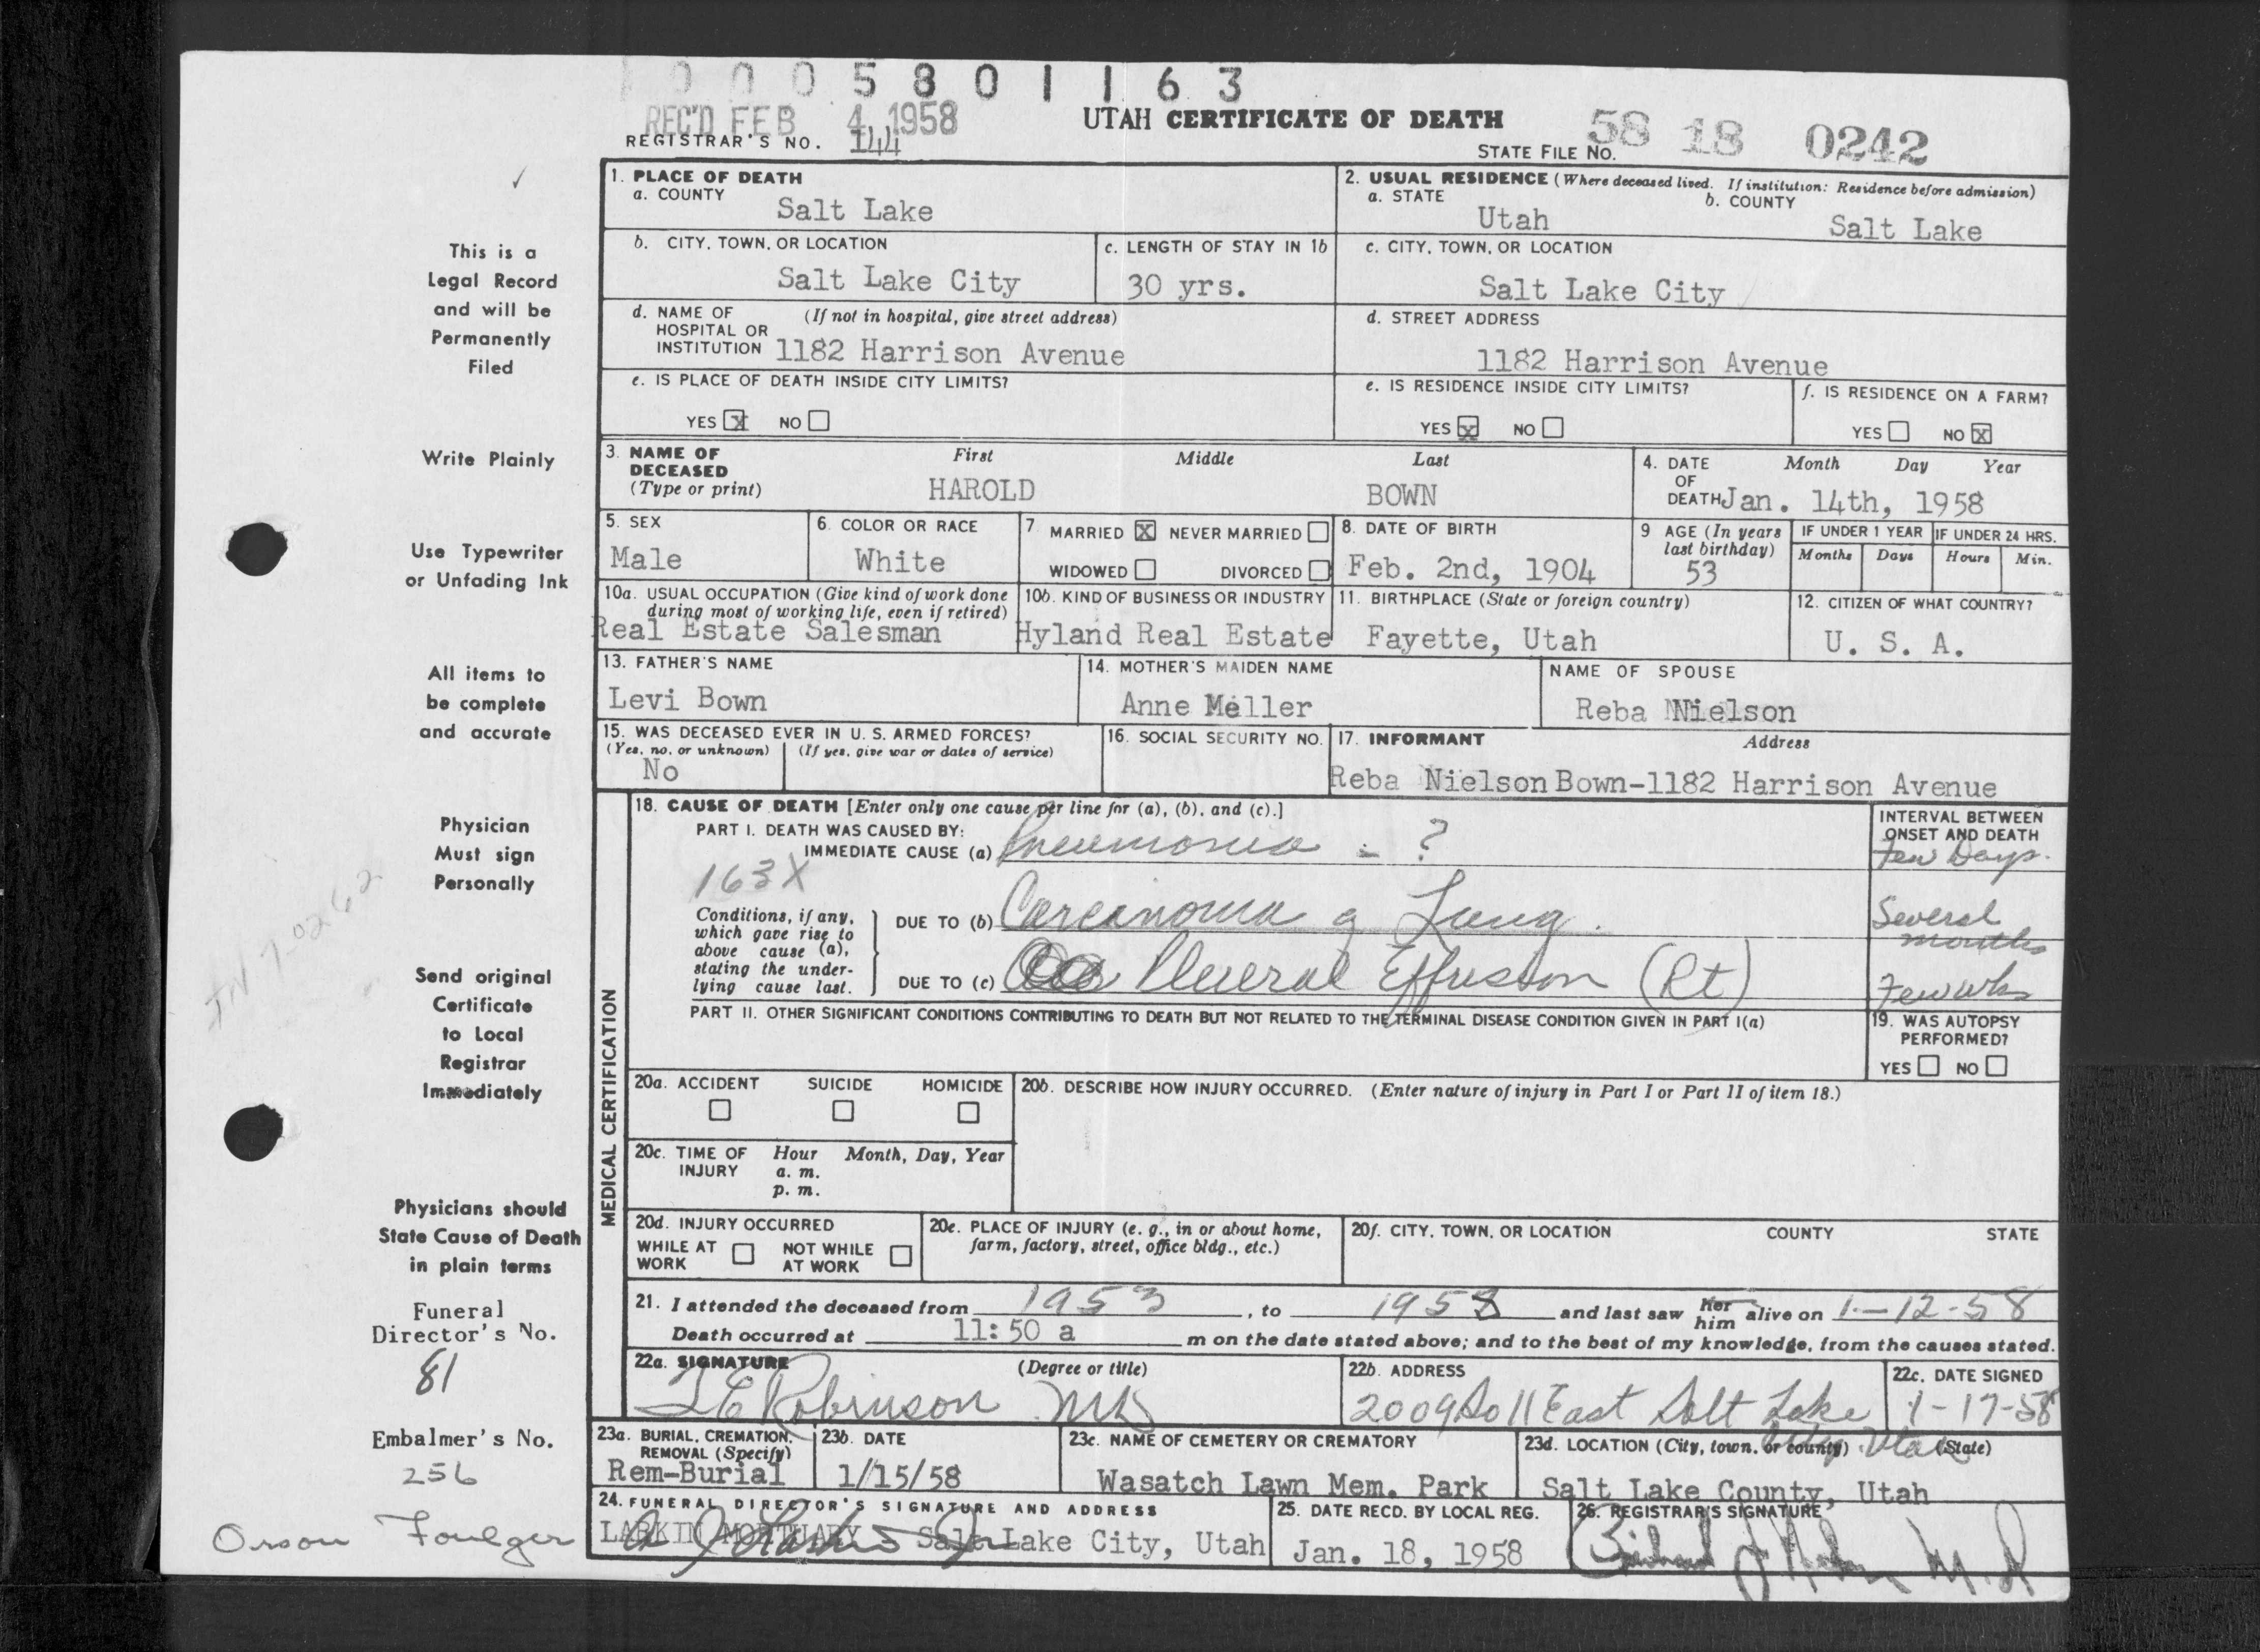 0 0 0 5 8 0 1 1 6 3
REC'D FEB 4 1958
REGISTRAR'S NO. 144
UTAH CERTIFICATE OF DEATH
STATE FILE NO. 58 18 0242
1. PLACE OF DEATH
a. COUNTY
Salt Lake
2. USUAL RESIDENCE (Where deceased lived. If institution: Residence before admission)
a. STATE
Utah
b. COUNTY
Salt Lake
This is a
Legal Record
and will be
Permanently
Filed
b. CITY, TOWN, OR LOCATION
Salt Lake City
c. LENGTH OF STAY IN 1b
30 yrs.
c. CITY, TOWN, OR LOCATION
Salt Lake City
d. NAME OF (If not in hospital, give street address)
HOSPITAL OR
INSTITUTION 1182 Harrison Avenue
d. STREET ADDRESS
1182 Harrison Avenue
e. IS PLACE OF DEATH INSIDE CITY LIMITS?
YES X NO
e. IS RESIDENCE INSIDE CITY LIMITS?
YES X NO
f. IS RESIDENCE ON A FARM?
YES NO X
Write Plainly
3. NAME OF
DECEASED
(Type or print)
First Middle Last
HAROLD BOWN
4. DATE Month Day Year
OF
DEATH Jan. 14th, 1958
Use Typewriter
or Unfading Ink
5. SEX
Male
6. COLOR OR RACE
White
7 MARRIED X NEVER MARRIED
WIDOWED DIVORCED
8. DATE OF BIRTH
Feb. 2nd, 1904
9 AGE (In years
last birthday)
53
IF UNDER 1 YEAR IF UNDER 24 HRS.
Months Days Hours Min.
10a. USUAL OCCUPATION (Give kind of work done
during most of working life, even if retired)
Real Estate Salesman
10b. KIND OF BUSINESS OR INDUSTRY
Hyland Real Estate
11. BIRTHPLACE (State or foreign country)
Fayette, Utah
12. CITIZEN OF WHAT COUNTRY?
U. S. A.
All items to
be complete
and accurate
13. FATHER'S NAME
Levi Bown
14. MOTHER'S MAIDEN NAME
Anne Meller
NAME OF SPOUSE
Reba Nielson
15. WAS DECEASED EVER IN U. S. ARMED FORCES?
(Yes, no, or unknown) (If yes, give war or dates of service)
No
16. SOCIAL SECURITY NO.
17. INFORMANT Address
Reba Nielson Bown-1182 Harrison Avenue
Physician
Must sign
Personally
MEDICAL CERTIFICATION
18. CAUSE OF DEATH [Enter only one cause per line for (a), (b), and (c).]
PART I. DEATH WAS CAUSED BY:
IMMEDIATE CAUSE (a) Pneumonia - ?
INTERVAL BETWEEN
ONSET AND DEATH
Few Days.
163X
Conditions, if any,
which gave rise to
above cause (a),
stating the under-
lying cause last.
DUE TO (b) Carcinoma of Lung.
Several
months
DUE TO (c) Pleural Effusion (Rt)
Few wks
Send original
Certificate
to Local
Registrar
Immediately
PART II. OTHER SIGNIFICANT CONDITIONS CONTRIBUTING TO DEATH BUT NOT RELATED TO THE TERMINAL DISEASE CONDITION GIVEN IN PART I(a)
19. WAS AUTOPSY
PERFORMED?
YES NO
20a. ACCIDENT SUICIDE HOMICIDE
20b. DESCRIBE HOW INJURY OCCURRED. (Enter nature of injury in Part I or Part II of item 18.)
20c. TIME OF Hour Month, Day, Year
INJURY a. m.
p. m.
Physicians should
State Cause of Death
in plain terms
20d. INJURY OCCURRED
WHILE AT NOT WHILE
WORK AT WORK
20e. PLACE OF INJURY (e. g., in or about home,
farm, factory, street, office bldg., etc.)
20f. CITY, TOWN, OR LOCATION COUNTY STATE
Funeral
Director's No.
81
21. I attended the deceased from 1953, to 1958 and last saw her him alive on 1-12-58
Death occurred at 11:50 a m on the date stated above; and to the best of my knowledge, from the causes stated.
22a. SIGNATURE (Degree or title)
Robinson MD
22b. ADDRESS
2009 So 11 East Salt Lake
City Utah
22c. DATE SIGNED
1-17-58
Embalmer's No.
256
Orson Foulger
23a. BURIAL, CREMATION,
REMOVAL (Specify)
Rem-Burial
23b. DATE
1/15/58
23c. NAME OF CEMETERY OR CREMATORY
Wasatch Lawn Mem. Park
23d. LOCATION (City, town, or county) (State)
Salt Lake County, Utah
24. FUNERAL DIRECTOR'S SIGNATURE AND ADDRESS
LARKIN MORTUARY Salt Lake City, Utah
25. DATE RECD. BY LOCAL REG.
Jan. 18, 1958
26. REGISTRAR'S SIGNATURE
M.D